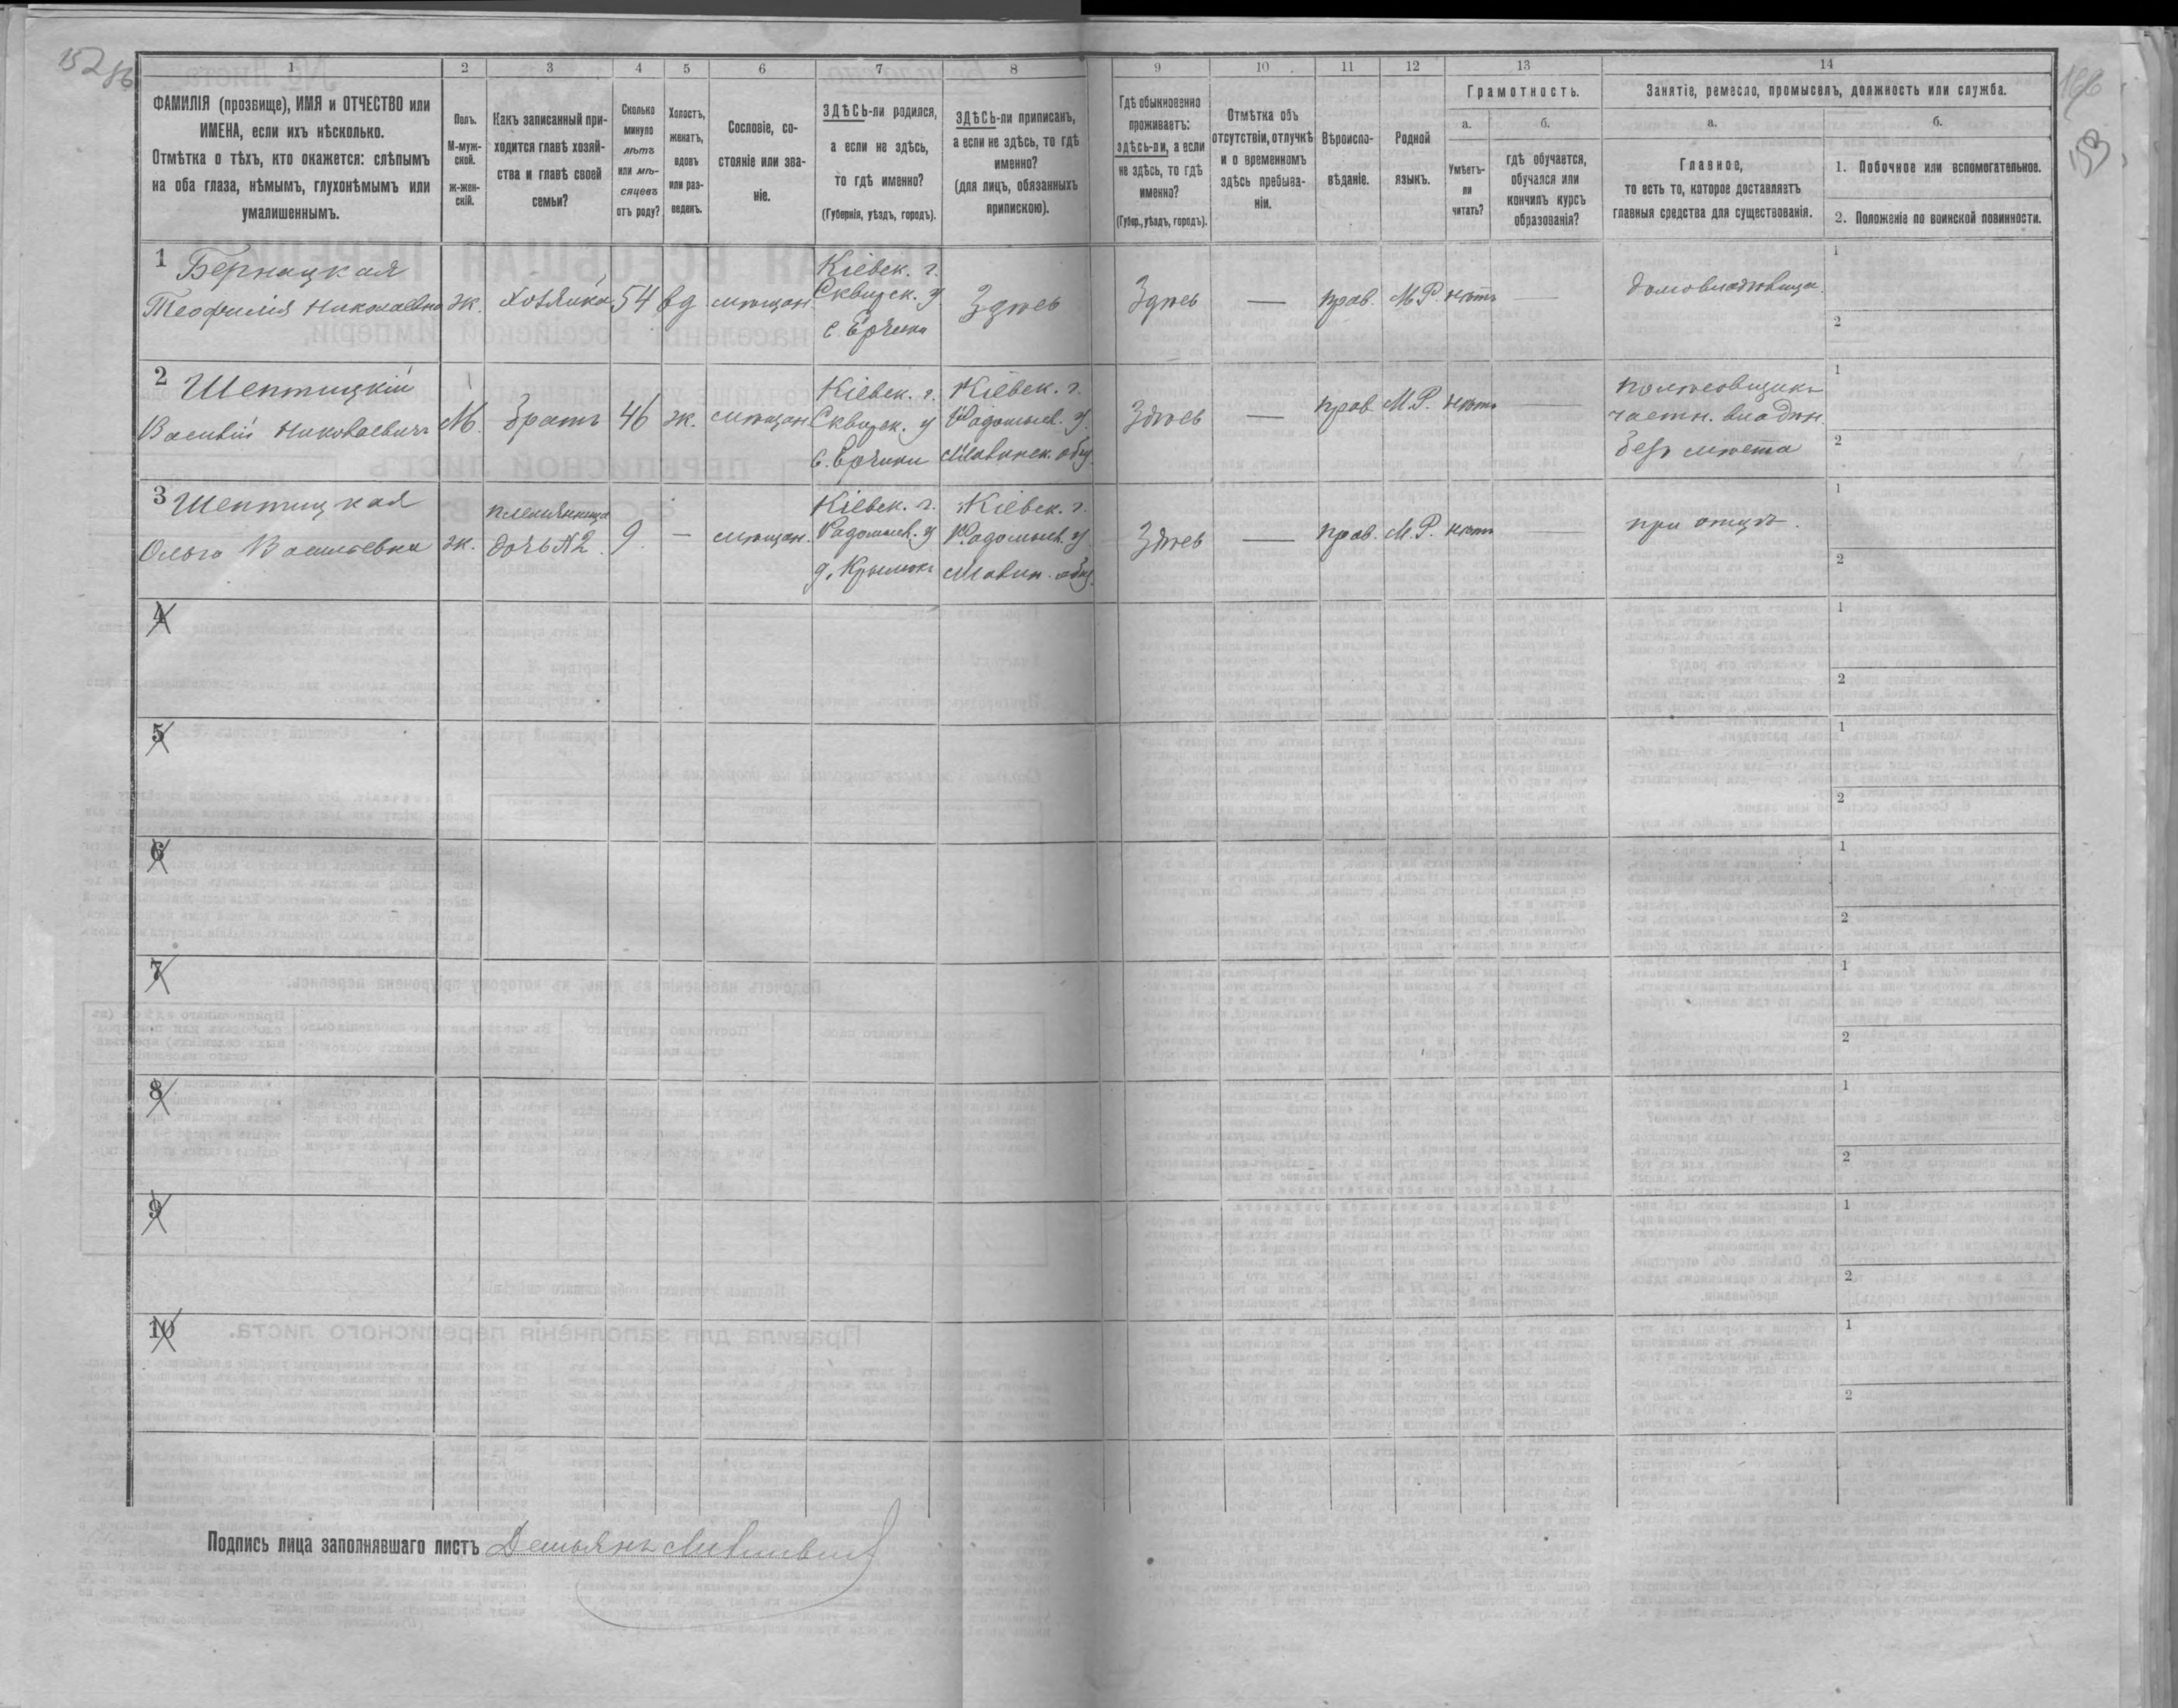 152 86
186
153
1
2
3
4
5
6
7
8
9
10
11
12
13
14
ФАМИЛІЯ (прозвище), ИМЯ и ОТЧЕСТВО или
ИМЕНА, если ихъ нѣсколько.
Отмѣтка о тѣхъ, кто окажется: слѣпымъ
на оба глаза, нѣмымъ, глухонѣмымъ или
умалишеннымъ.
Полъ.
М-муж-
ской.
ж-жен-
скій.
Какъ записанный при-
ходится главѣ хозяй-
ства и главѣ своей
семьи?
Сколько
минуло
лѣтъ
или мѣ-
сяцевъ
отъ роду?
Холостъ,
женатъ,
вдовъ
или раз-
веденъ.
Сословіе, со-
стояніе или зва-
ніе.
ЗДѢСЬ-ли родился,
а если не здѣсь,
то гдѣ именно?
(Губернія, уѣздъ, городъ).
ЗДѢСЬ-ли приписанъ,
а если не здѣсь, то гдѣ
именно?
(для лицъ, обязанныхъ
припискою).
Гдѣ обыкновенно
проживаетъ:
здѣсь-ли, а если
не здѣсь, то гдѣ
именно?
(Губер., уѣздъ, городъ).
Отмѣтка объ
отсутствіи, отлучкѣ
и о временномъ
здѣсь пребыва-
ніи.
Вѣроиспо-
вѣданіе.
Родной
языкъ.
Грамотность.
а.
б.
Умѣетъ-
ли
читать?
гдѣ обучается,
обучался или
кончилъ курсъ
образованія?
Занятіе, ремесло, промыселъ, должность или служба.
а.
б.
Главное,
то есть то, которое доставляетъ
главныя средства для существованія.
1. Побочное или вспомогательное.
2. Положеніе по воинской повинности.
1 Бернацкая
Теофилія Николаевна
ж.
хозяйка
54
вд
мѣщан.
Кіевск. г.
Сквирск. у
с. Ерчики
Здѣсь
Здѣсь
—
прав.
М.Р.
нѣтъ
—
домовладѣлица.
1
2
2 Шептицкій
Василій Николаевичъ
М.
братъ
46
ж.
мѣщан.
Кіевск. г.
Сквирск. у
с. Ерчики
Кіевск. г.
Радомысл. у.
Здѣсь
—
прав.
М.Р.
нѣтъ
—
частн. владѣн.
безъ мѣста
1
2
3 Шептицкая
Ольга Васильевна
ж.
племянница
дочь №2.
9.
—
мѣщан.
Кіевск. г.
Радомысл. у
д. Крымокъ
Кіевск. г.
Радомысл. у
Здѣсь
—
прав.
М.Р.
нѣтъ
—
при отцѣ.
1
2
4
1
2
5
1
2
6
1
2
7
1
2
8
1
2
9
1
2
10
1
2
Подпись лица заполнявшаго листъ Демьянъ